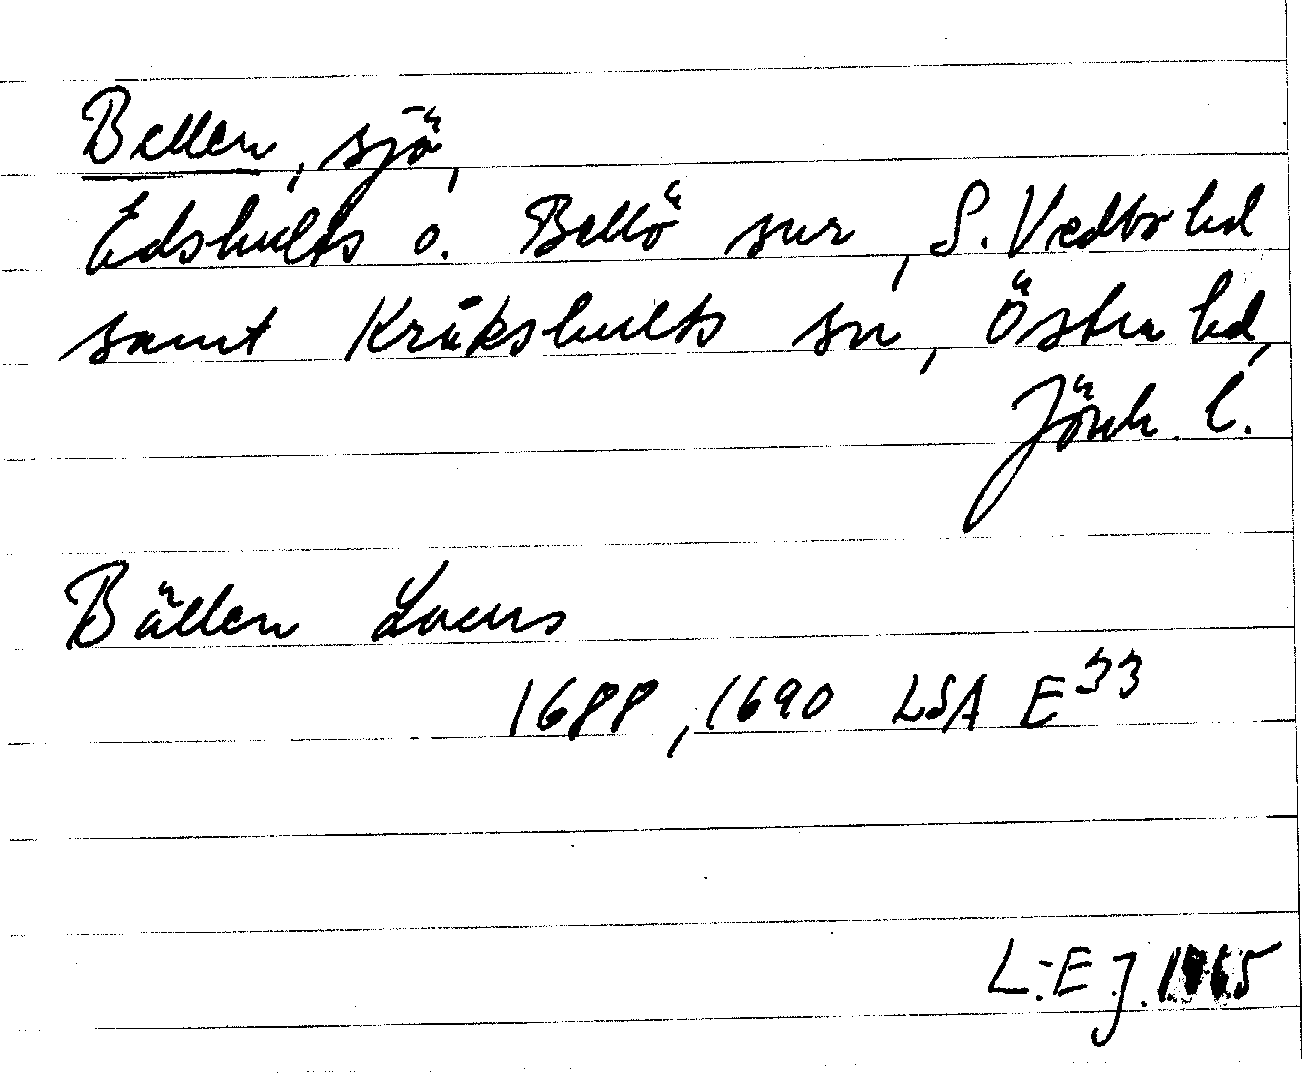 Bellen, sjö,
Edshults o. Bellö snr, S. Vedbo hd
samt Kråkshults sn, Östra hd,
Jönk. l.
Bällen Lacus
1688, 1690 LSA E33
L.-E. J. 1965